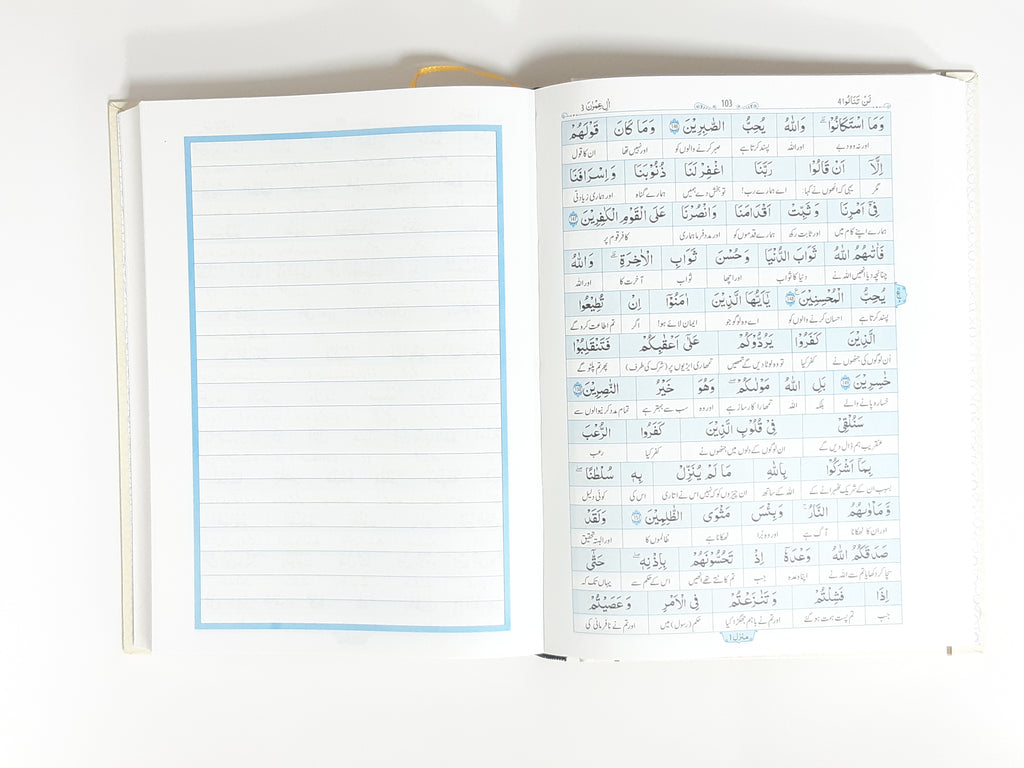 لَنْ تَنَالُوا 4 103 اٰلِ عِمْرٰنَ 3
وَمَا اسْتَكَانُوْا ؕ وَاللّٰهُ يُحِبُّ الصّٰبِرِيْنَ ﴿۱۴۶﴾ وَمَا كَانَ قَوْلَهُمْ
اور نہ وہ دبے اور اللہ پسند کرتا ہے صبر کرنے والوں کو اور نہیں تھا ان کا قول
اِلَّاۤ اَنْ قَالُوْا رَبَّنَا اغْفِرْ لَنَا ذُنُوْبَنَا وَاِسْرَافَنَا
مگر یہی کہ انھوں نے کہا: اے ہمارے رب! تو بخش دے ہمیں ہمارے گناہ اور ہماری زیادتی
فِيْۤ اَمْرِنَا وَثَبِّتْ اَقْدَامَنَا وَانْصُرْنَا عَلَى الْقَوْمِ الْكٰفِرِيْنَ ﴿۱۴۷﴾
ہمارے اپنے کام میں اور ثابت رکھ ہمارے قدموں کو اور مدد فرما ہماری کافر قوم پر
فَاٰتٰىهُمُ اللّٰهُ ثَوَابَ الدُّنْيَا وَحُسْنَ ثَوَابِ الْاٰخِرَةِ ؕ وَاللّٰهُ
چنانچہ دیا انھیں اللہ نے دنیا کا ثواب اور اچھا ثواب آخرت کا اور اللہ
يُحِبُّ الْمُحْسِنِيْنَ ﴿۱۴۸﴾ يٰۤاَيُّهَا الَّذِيْنَ اٰمَنُوْۤا اِنْ تُطِيْعُوا
پسند کرتا ہے احسان کرنے والوں کو اے وہ لوگو جو ایمان لائے ہو! اگر تم اطاعت کرو گے
الَّذِيْنَ كَفَرُوْا يَرُدُّوْكُمْ عَلٰۤى اَعْقَابِكُمْ فَتَنْقَلِبُوْا
ان لوگوں کی جنھوں نے کفر کیا تو وہ لوٹا دیں گے تمھیں تمھاری ایڑیوں پر (شرک کی طرف) پھر تم پلٹو گے
خٰسِرِيْنَ ﴿۱۴۹﴾ بَلِ اللّٰهُ مَوْلٰىكُمْ ۚ وَهُوَ خَيْرُ النّٰصِرِيْنَ ﴿۱۵۰﴾
خسارہ پانے والے بلکہ اللہ تمھارا کارساز ہے اور وہ سب سے بہتر ہے تمام مدد کرنیوالوں سے
سَنُلْقِيْ فِيْ قُلُوْبِ الَّذِيْنَ كَفَرُوا الرُّعْبَ
عنقریب ہم ڈال دیں گے ان لوگوں کے دلوں میں جنھوں نے کفر کیا رعب
بِمَاۤ اَشْرَكُوْا بِاللّٰهِ مَا لَمْ يُنَزِّلْ بِهٖ سُلْطٰنًا ۚ
بسبب ان کے شریک ٹھہرانے کے اللہ کے ساتھ ان چیزوں کو کہ نہیں اس نے اتاری اس کی کوئی دلیل
وَمَاْوٰىهُمُ النَّارُ ؕ وَبِئْسَ مَثْوَى الظّٰلِمِيْنَ ﴿۱۵۱﴾ وَلَقَدْ
اور ان کا ٹھکانا آگ ہے اور وہ برا ٹھکانا ہے ظالموں کا اور البتہ تحقیق
صَدَقَكُمُ اللّٰهُ وَعْدَهٗۤ اِذْ تَحُسُّوْنَهُمْ بِاِذْنِهٖ ۚ حَتّٰۤى
سچا کر دکھایا تم سے اللہ نے اپنا وعدہ جب تم کاٹتے تھے انھیں اس کے حکم سے یہاں تک کہ
اِذَا فَشِلْتُمْ وَتَنَازَعْتُمْ فِي الْاَمْرِ وَعَصَيْتُمْ
جب تم پست ہمت ہو گئے اور تم نے باہم جھگڑا کیا حکم (رسول) میں اور تم نے نافرمانی کی
منزل ۱